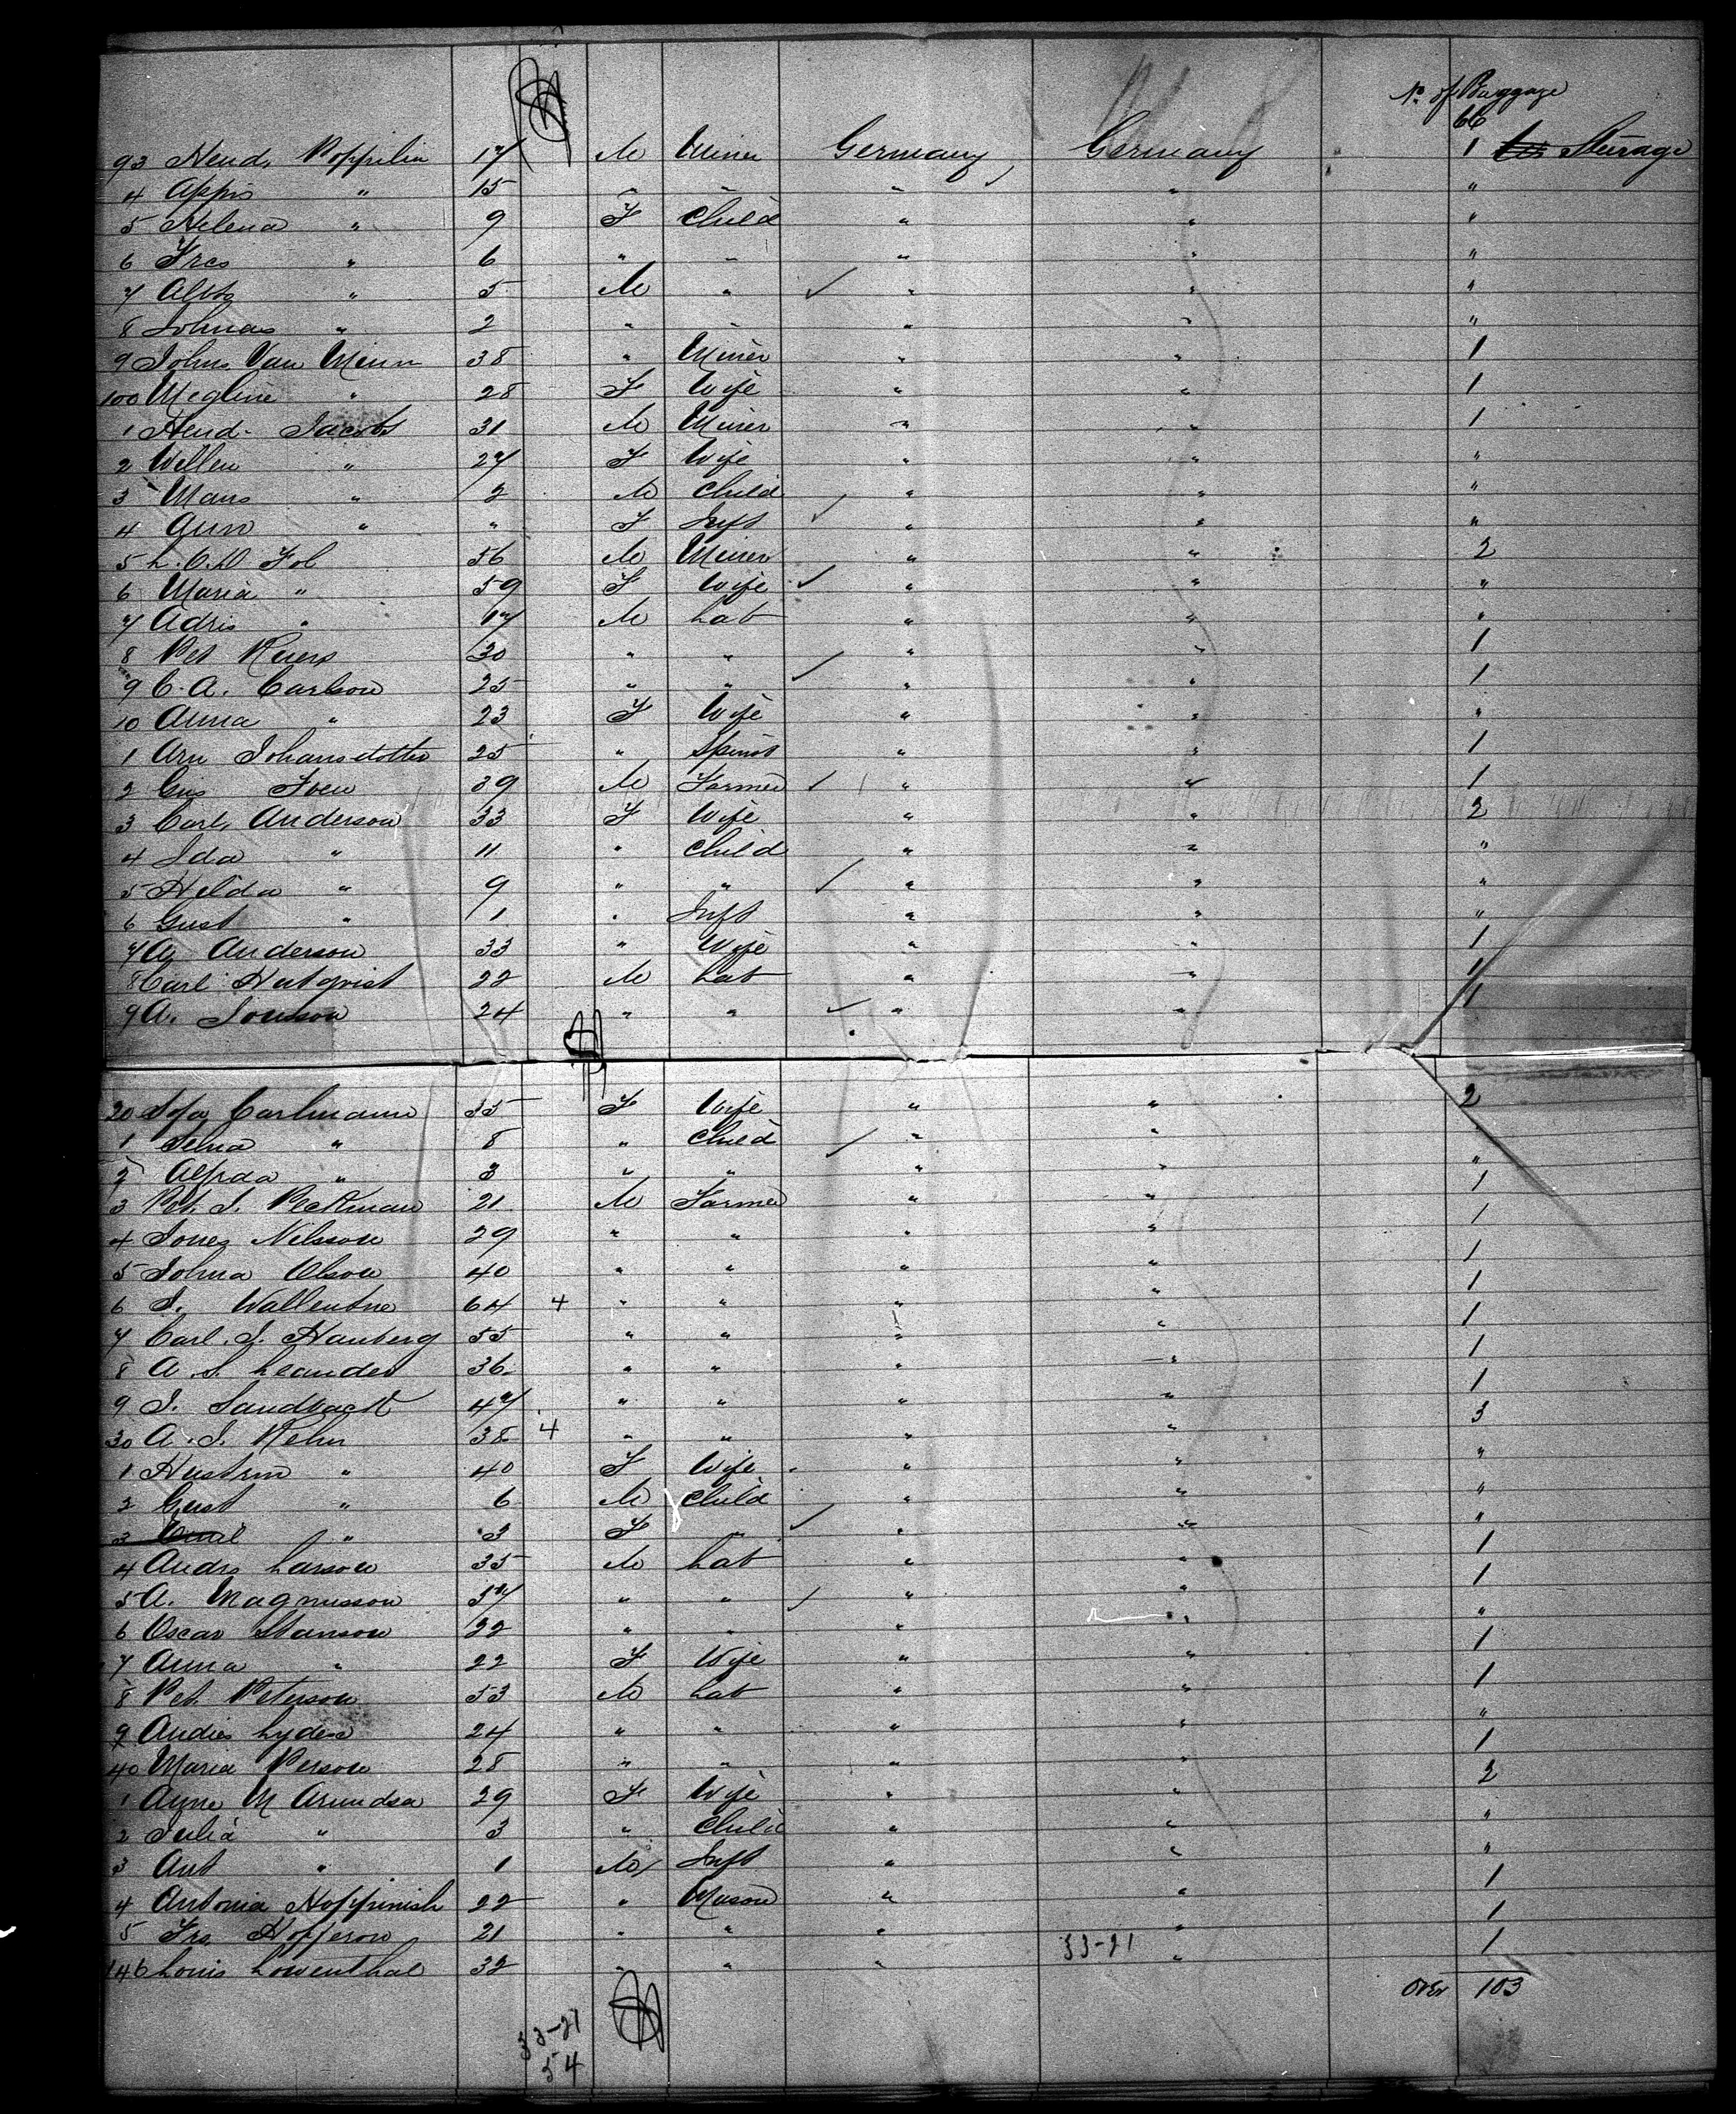 No. of Baggage
66
93 Hend. Poppelin 17 M Miner Germany Germany 1 Sturage
4 Appo " 15 " " " " "
5 Helena " 9 F Child " " "
6 Fres " 6 " " " " "
7 Albts " 5 M " " " "
8 Johnas " 2 " " " " "
9 Johns Van Minn 38 " Miner " " 1
100 Megline " 28 F Wife " " 1
1 Hend. Jacobs 31 M Miner " " 1
2 Wellen " 27 F Wife " " "
3 Mans " 2 M Child " " "
4 Ann " " F Inft " " "
5 L. O. D Fol 56 M Miner " " 2
6 Maria " 59 F Wife " " "
7 Adris " 17 M Lab " " "
8 Pet Ruers 30 " " " " 1
9 C. A. Carlson 25 " " " " 1
10 Anna " 23 F Wife " " "
1 Arn Johansdotter 25 " Spinst " " 1
2 Gus 39 M Farmer " " 1
3 Carl Anderson 33 F Wife " " 2
4 Ida " 11 " Child " " "
5 Hilda " 9 " " " " "
6 Gust " 1 " Inft " " "
7 A. Anderson 33 " Wife " " 1
8 Carl Hutqvist 22 M Lab " " 1
9 A. Jonson 24 " " " " 1
20 Sofa Carlmann 35 F Wife " " 2
1 Selna " 8 " Child " "
2 Alfrda " 3 " " " " "
3 Pet. J. Peckman 21 M Farmer " " 1
4 Jones Nilsson 29 " " " " 1
5 Johna Olson 40 " " " " 1
6 J. Wallentne 64 4 " " " " 1
7 Carl. J. Hanberg 55 " " " " 1
8 A. S. Leander 36 " " " " 1
9 J. Sandback 47 " " " " 1
30 A. J. Rehn 38 4 " " " " 3
1 Hustrin " 40 F Wife " " "
2 Gust " 6 M Child " " "
3 Emil " 3 F " " " "
4 Andrs Larson 35 M Lab " " 1
5 A. Magnusson 37 " " " " 1
6 Oscar Stanson 22 " " " " "
7 Anna " 22 F Wife " " 1
8 Pet. Peterson 53 M Lab " " 1
9 Andies Lyden 24 " " " " "
40 Maria Person 28 " " " " 1
1 Anne M Amundsa 29 F Wife " " 2
2 Julia " 3 " Child " " "
3 Ant " 1 M Inft " " "
4 Antonia Hoppinish 22 " Mason " " 1
5 Frs Hofferon 21 " " " " 1
33-21
146 Louis Lowenthal 32 " " " " 1
Over 103
33-21
54